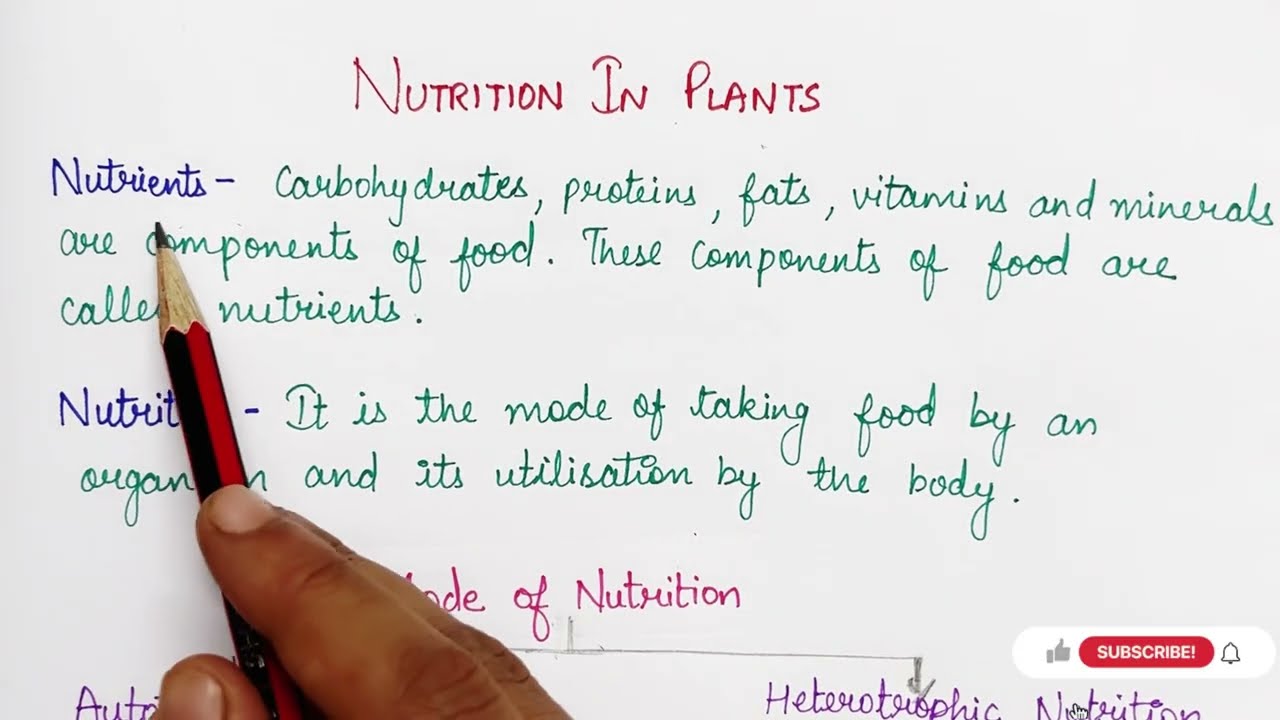 NUTRITION IN PLANTS
Nutrients - Carbohydrates, proteins, fats, vitamins and minerals
are components of food. These components of food are
called nutrients.
- It is the mode of taking food by an
and its utilisation by the body.
of Nutrition
Heterotrophic Nutrition
SUBSCRIBE!